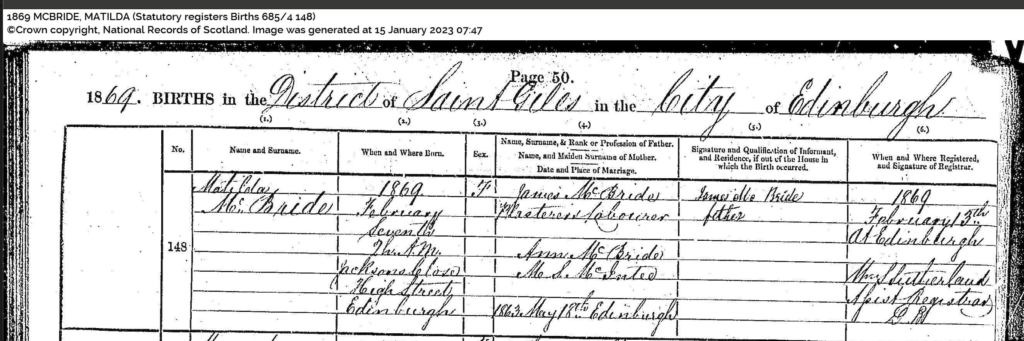 1869 MCBRIDE, MATILDA (Statutory registers Births 685/4 148)
©Crown copyright, National Records of Scotland. Image was generated at 15 January 2023 07:47
Page 50.
1869. BIRTHS in the District of Saint Giles in the City of Edinburgh
(1.) (2.) (3.) (4.) (5.) (6.)
No.
Name and Surname.
When and Where Born.
Sex.
Name, Surname, & Rank or Profession of Father.
Name, and Maiden Surname of Mother.
Date and Place of Marriage.
Signature and Qualification of Informant,
and Residence, if out of the House in
which the Birth occurred.
When and Where Registered,
and Signature of Registrar.
148
Matilda
McBride
1869
February
Seventh
7h. A.M.
Jacksons Close
High Street
Edinburgh
F
James McBride
Plasterers Labourer
Ann McBride
M.S. McEntee
1863. May 18th Edinburgh
James Mc Bride
father
1869
February 13th
At Edinburgh
Wm Sutherland
Assist Registrar